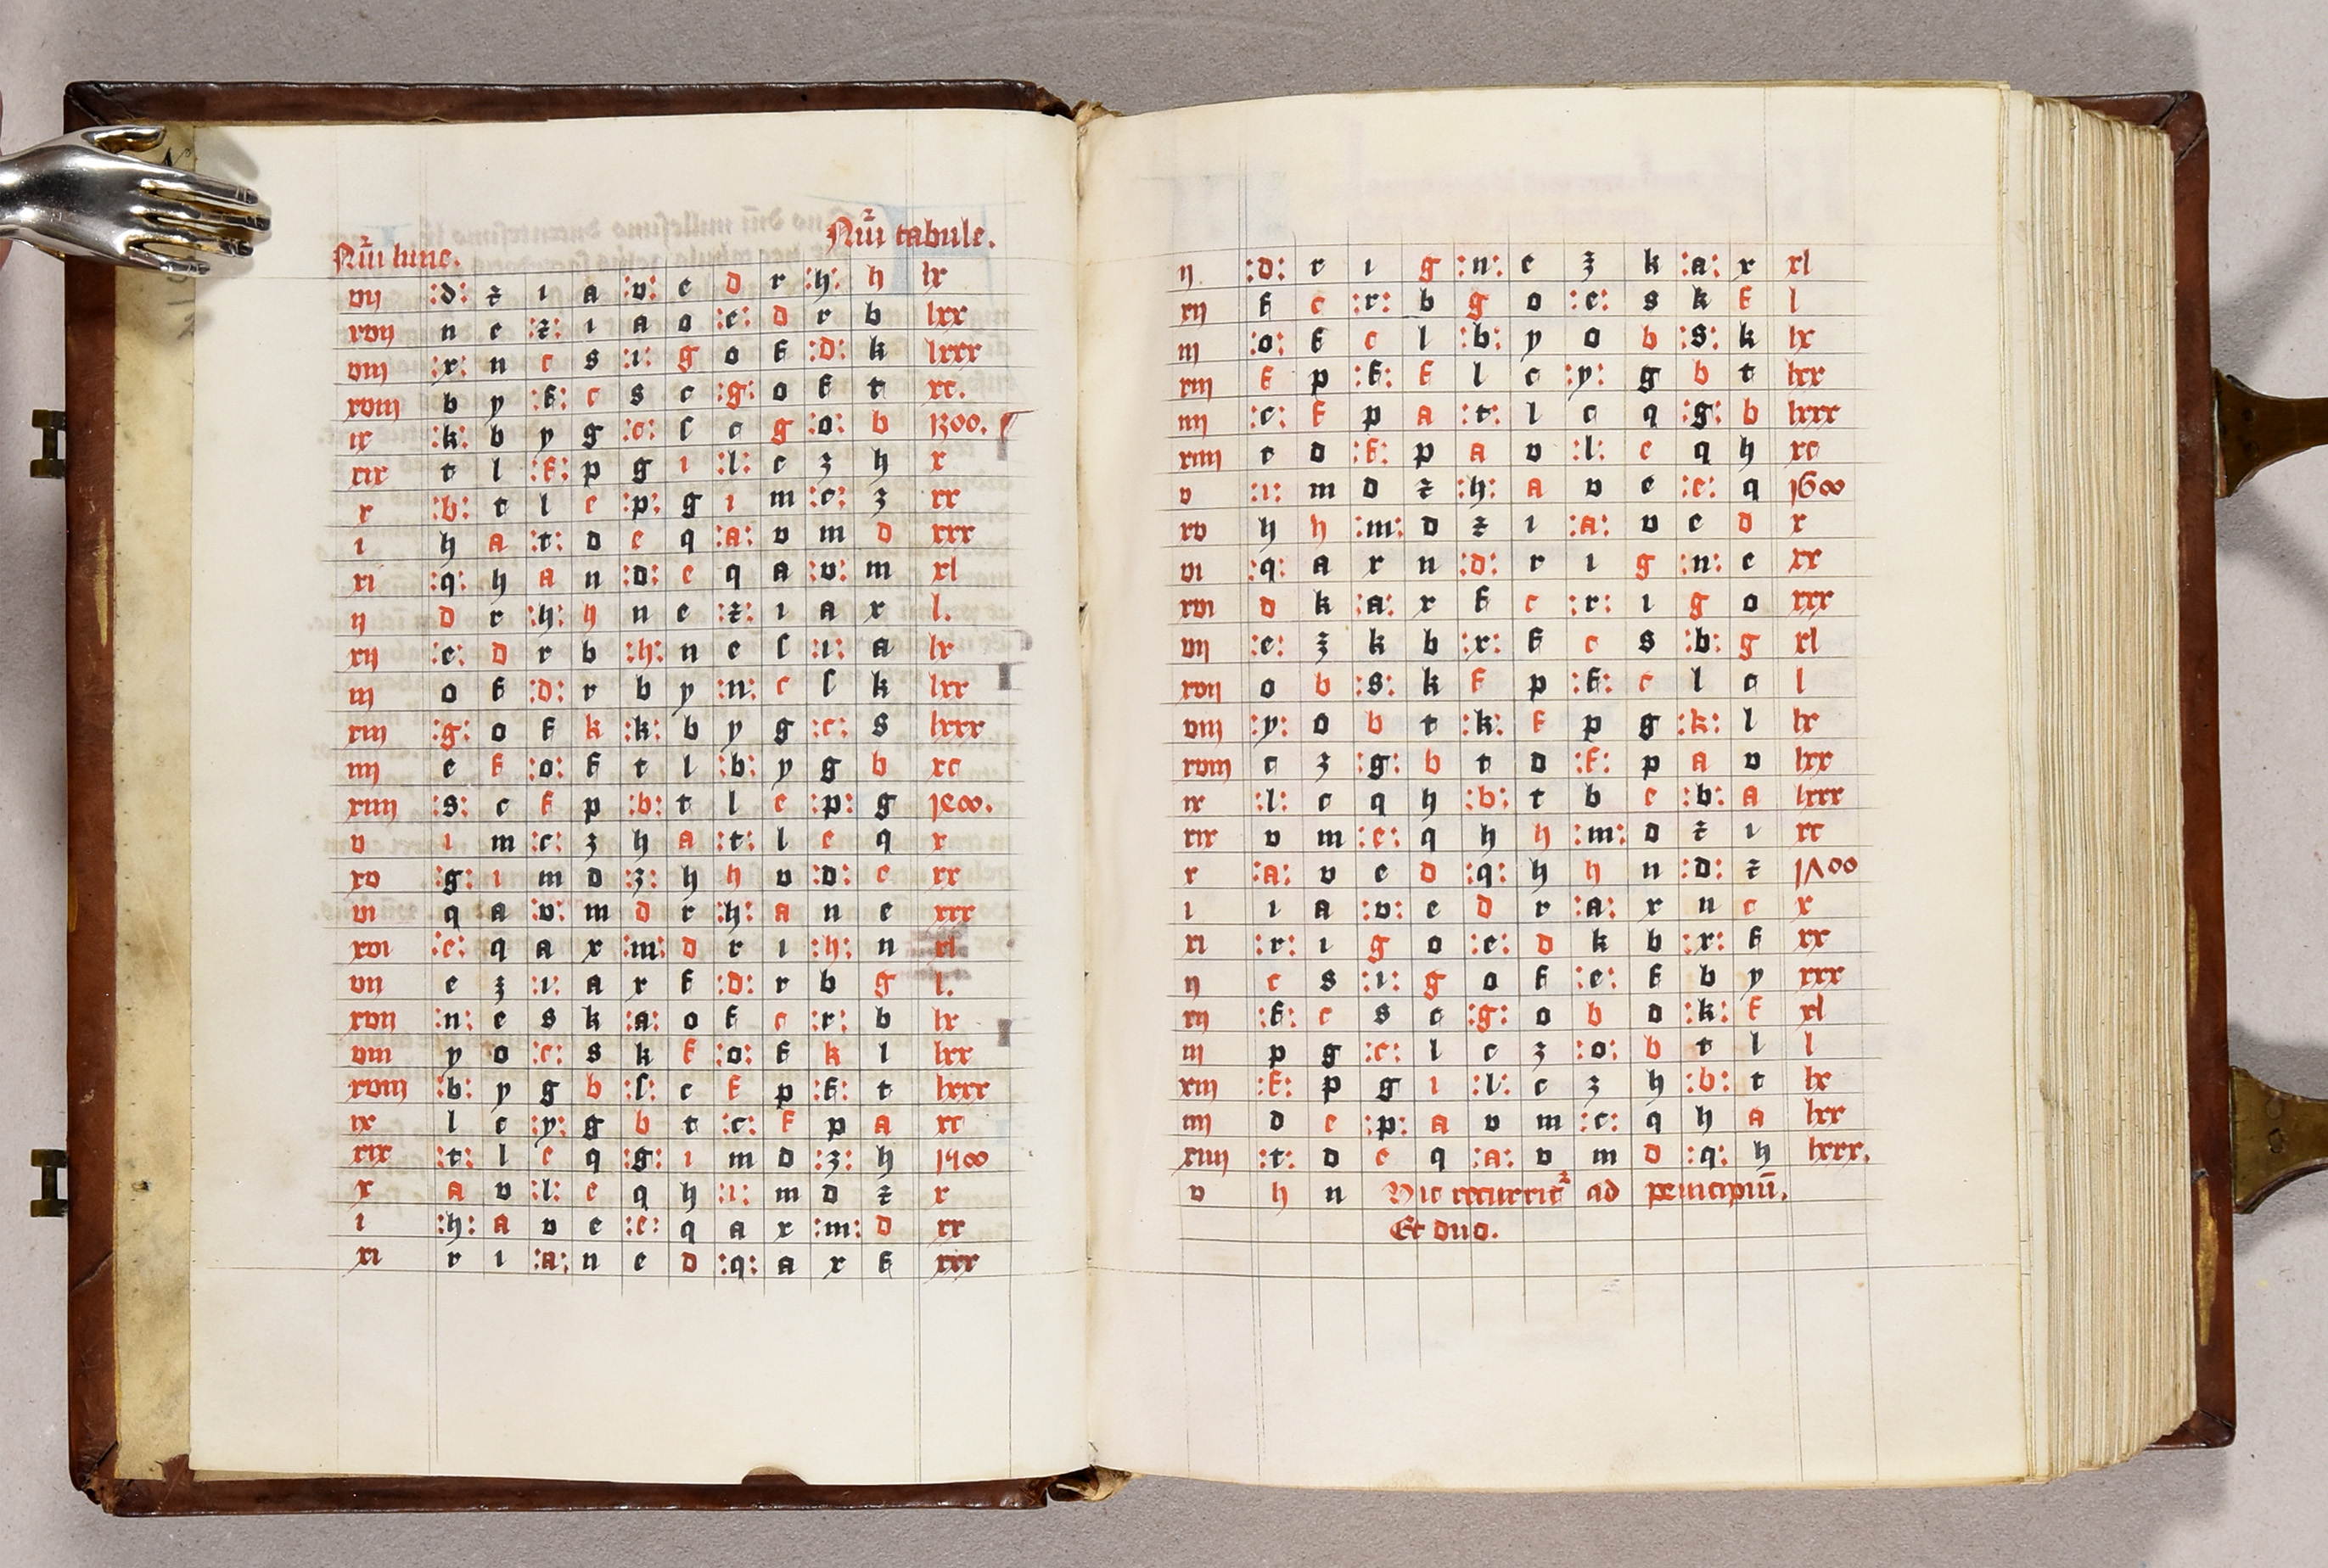 Nũi lune. Nũi tabule.
vij :d: ꝛ̄ ı a :v: e d r :h: h lx
xvij n e :ꝛ̄: ı a o :e: d r b lxx
viij :x: n c s :ı: g o f :d: k lxxx
xviij b y :f: c s c :g: o f t xc.
ix :k: b y g :c: ſ c g :o: b 1300.
xix t l :f: p g ı :l: c z h x
x :b: t l e :p: g ı m :c: z xx
i h a :t: d e q :a: v m d xxx
xi :q: h a n :d: e q a :v: m xl
ij d r :h: h n e :ꝛ̄: ı a x l.
xij :e: d r b :h: n e ſ :ı: a lx
iij o f :d: r b y :n: c ſ k lxx
xiij :g: o f k :k: b y g :c: s lxxx
iiij c f :o: f t l :b: y g b xc
xiiij :s: c f p :b: t l e :p: g 1400.
v ı m :c: z h a :t: l e q x
xv :g: ı m d :z: h h v :d: e xx
vi q a :v: m d r :h: a n e xxx
xvi :e: q a x :m: d r ı :h: n xl
vij e z :ı: a x f :d: r b g l.
xvij :n: e s k :a: o f c :r: b lx
viij y o :c: s k f :o: f k l lxx
xviij :b: y g b :ſ: c f p :f: t lxxx
ix l c :y: g b t :c: f p a xc
xix :t: l e q :g: ı m d :z: h 1500
x a v :l: e q h :ı: m d ꝛ̄ x
i :h: a v e :e: q a x :m: d xx
xi r ı :a: n e d :q: a x f xxx
ij :d: r ı g :n: e z k :a: x xl
xij f c :r: b g o :e: s k f l
iij :o: f c l :b: y o b :s: k lx
xiij f p :f: f l c :y: g b t lxx
iiij :c: f p a :t: l c q :g: b lxxx
xiiij c d :f: p a v :l: e q h xc
v :ı: m d ꝛ̄ :h: a v e :e: q 1600
xv h h :m: d ꝛ̄ ı :a: v e d x
vi :q: a x n :d: r ı g :n: e xx
xvi d k :a: x f c :r: ı g o xxx
vij :e: z k b :x: f c s :b: g xl
xvij o b :s: k f p :f: c l c l
viij :y: o b t :k: f p g :k: l lx
xviij c z :g: b t d :f: p a v lxx
ix :l: c q h :b: t b e :b: a lxxx
xix v m :e: q h h :m: d ꝛ̄ ı xc
x :a: v e d :q: h h n :d: ꝛ̄ 1700
i ı a :v: e d r :a: x n c x
xi :r: ı g o :e: d k b :x: f xx
ij c s :ı: g o f :e: f b y xxx
xij :f: c s c :g: o b d :k: f xl
iij p g :c: l c z :o: b t l l
xiij :f: p g ı :l: c z h :b: t lx
iiij d e :p: a v m :c: q h a lxx
xiiij :t: d e q :a: v m d :q: h lxxx.
v h n Hic recurrit̉ ad principiū.
Et duo.